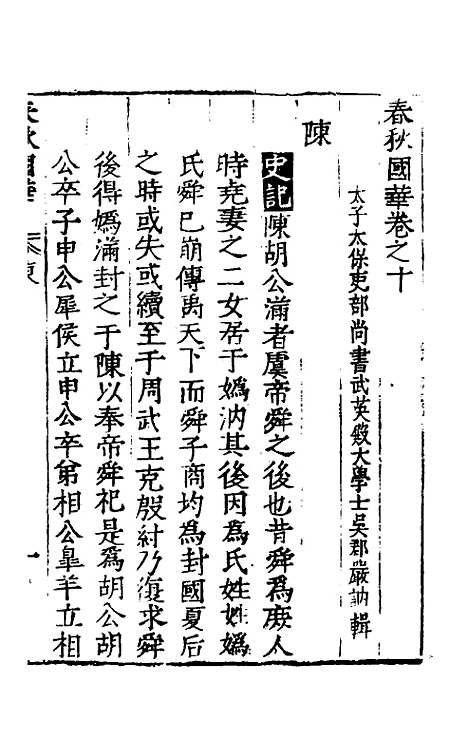 春秋國華卷之十
太子太保吏部尚書武英殿大學士吳郡嚴訥輯
陳
史記陳胡公滿者虞帝舜之後也昔舜爲庶人
時堯妻之二女居于嬀汭其後因爲氏姓姓嬀
氏舜巳崩傳禹天下而舜子商均爲封國夏后
之時或失或續至于周武王克殷紂乃復求舜
後得嬀滿封之于陳以奉帝舜祀是爲胡公胡
公卒子申公犀侯立申公卒弟相公臯羊立相
春秋國華
卷 陳
一